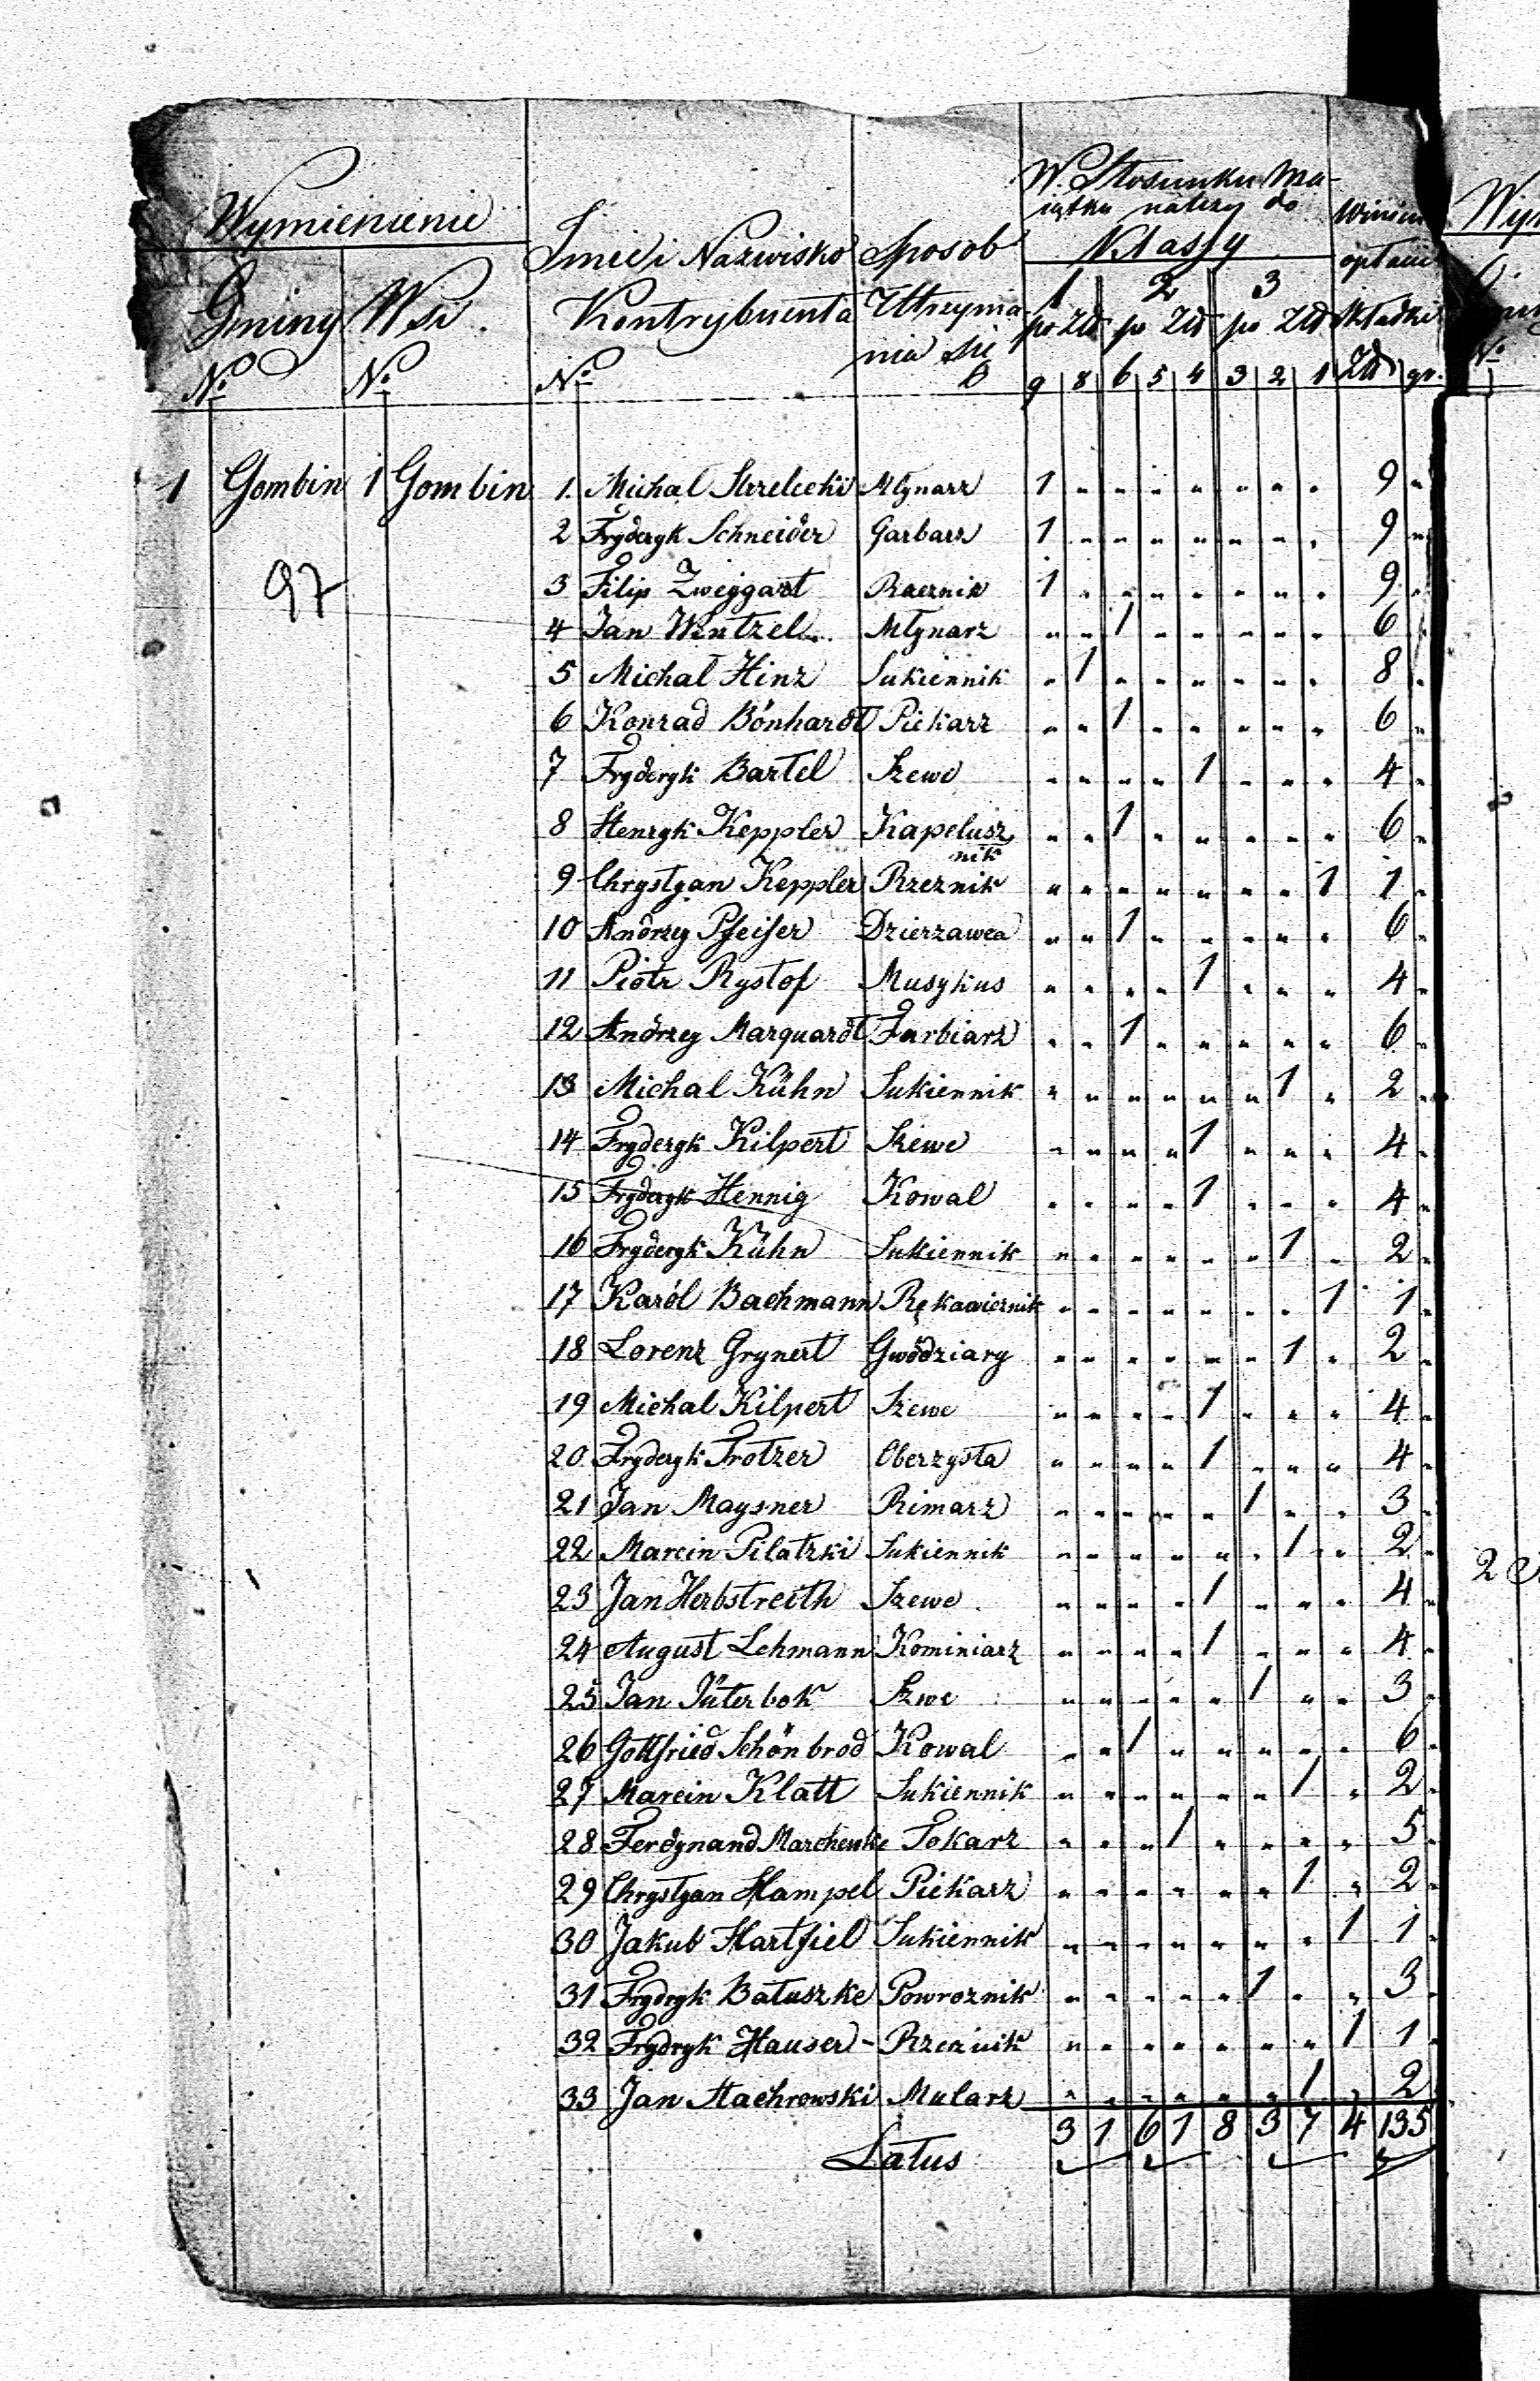 Wymienienie
Gminy Wsi
No No
Imie i Nazwisko
Kontrybuenta
No
Sposob
Utrzyma
nia się
W. Stosunku Ma-
iątku należy do
Klassy
1 2 3
po Złd po Złd po Złd
9 8 6 5 4 3 2 1
Winien
opłacić
składki
Złd gr.
1 Gombin 1 Gombin 1. Michal Strzelecki Młynarz 1 " " " " " " " 9 "
2 Fryderyk Schneider Garbarz 1 " " " " " " " 9 "
97
3 Filip Zweygart Rzeznik 1 " " " " " " " 9 "
4 Jan Wentzel Młynarz " " 1 " " " " " 6 "
5 Michał Hinz Sukiennik " 1 " " " " " " 8 "
6 Konrad Bönhardt Piekarz " " 1 " " " " " 6 "
7 Fryderyk Bartel Szewc " " " " 1 " " " 4 "
8 Henryk Keppler Kapelusz " " 1 " " " " " 6 "
nik
9 Chrystyan Keppler Rzeznik " " " " " " " 1 1 "
10 Andrzey Pfeifer Dzierzawca " " 1 " " " " " 6 "
11 Piotr Rystof Musykus " " " " 1 " " " 4 "
12 Andrzey Marquardt Farbiarz " " 1 " " " " " 6 "
13 Michal Kühn Sukiennik " " " " " " 1 " 2 "
14 Fryderyk Kilpert Szewc " " " " 1 " " " 4 "
15 Fryderyk Hennig Kowal " " " " 1 " " " 4 "
16 Fryderyk Kühn Sukiennik " " " " " " 1 " 2 "
17 Karól Bachmann Rękawicznik " " " " " " " 1 1 "
18 Lorenz Grynert Gwódziary " " " " " " 1 " 2 "
19 Michal Kilpert Szewc " " " " 1 " " " 4 "
20 Fryderyk Trotzer Oberzysta " " " " 1 " " " 4 "
21 Jan Maysner Rimarz " " " " " 1 " " 3 "
22 Marcin Pilatzki Sukiennik " " " " " " 1 " 2 "
23 Jan Herbstreith Szewc " " " " 1 " " " 4 "
24 August Lehmann Kominiarz " " " " 1 " " " 4 "
25 Jan Jüterbok Szwc " " " " " 1 " " 3 "
26 Gottfried Schönbrod Kowal " " 1 " " " " " 6 "
27 Marcin Klatt Sukiennik " " " " " " 1 " 2 "
28 Ferdynand Marchenke Tokarz " " " 1 " " " " 5 "
29 Chrystyan Hampel Piekarz " " " " " " 1 " 2 "
30 Jakub Hartfiel Sukiennik " " " " " " " 1 1 "
31 Frydryk Batuszke Powroznik " " " " " 1 " " 3 "
32 Frydryk Hauser - Rzeznik " " " " " " " 1 1 "
33 Jan Stachrowski Mularz " " " " " " 1 " 2
Latus 3 1 6 1 8 3 7 4 135
2